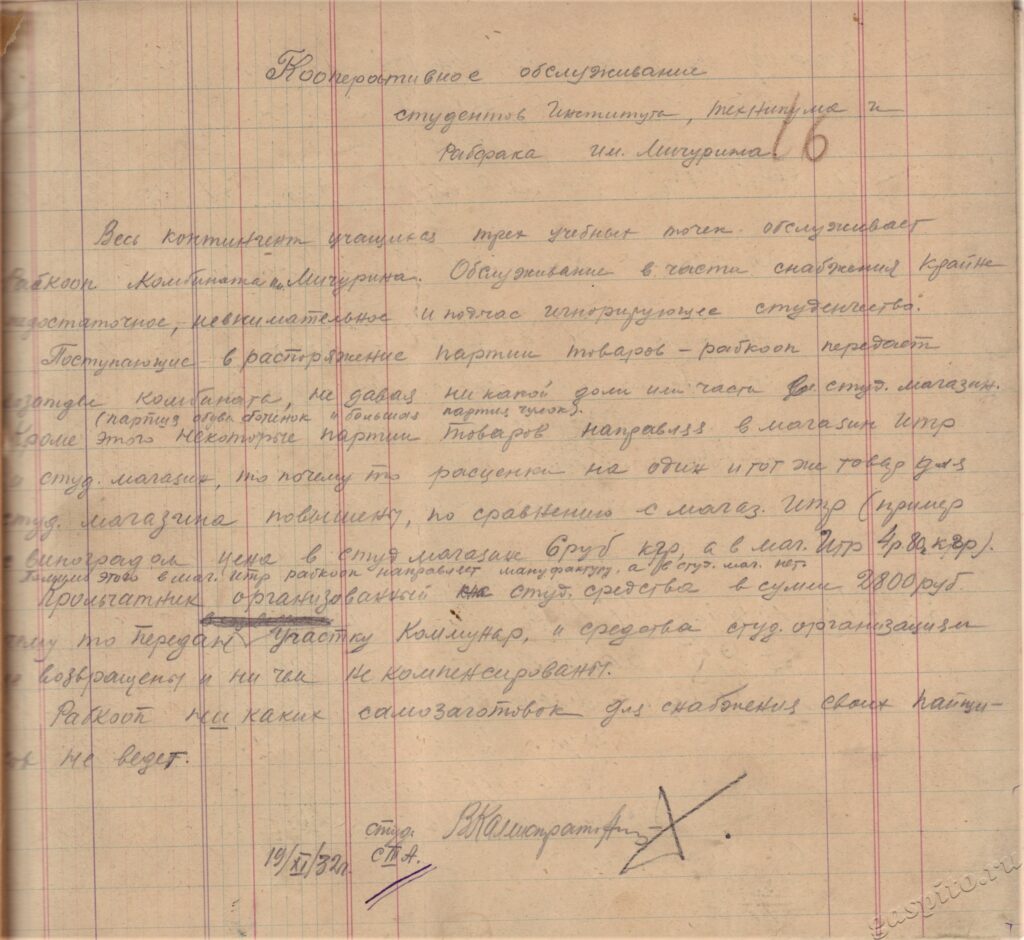 Кооперативное обслуживание
студентов Института, техникума и
Рабфака им. Мичурина.
16
Весь контингент учащихся трех учебных точек обслуживает
Рабкооп Комбината им. Мичурина. Обслуживание в части снабжения крайне
недостаточное, невнимательное и подчас игнорирующее студенчество.
Поступающие в распоряжение партии товаров – рабкооп передает
комбината, не давая ни какой доли или части студ. магазин.
(партия обуви ботинок и большая партия чулок).
Кроме этого некоторые партии товаров направляя в магазин Итр
студ. магазин, то почему то расценки на один и тот же товар для
студ. магазина повышены, по сравнению с магаз. Итр (пример
с виноградом цена в студ магазине 6 руб кгр, а в маг. Итр 4р 80к кгр).
этого в маг. Итр рабкооп направляет мануфактуру, а в студ. маг. нет.
Крольчатник организованный на студ. средства в сумми 2800 руб
чему то передан участку Коммунар, и средства студ. организациям
не возвращены и ни чем не компенсированы.
Рабкооп ни каких самозаготовок для снабжения своих пайщи-
ков не ведет.
студ.
19/XI/32г. СТА.
gaspito.ru